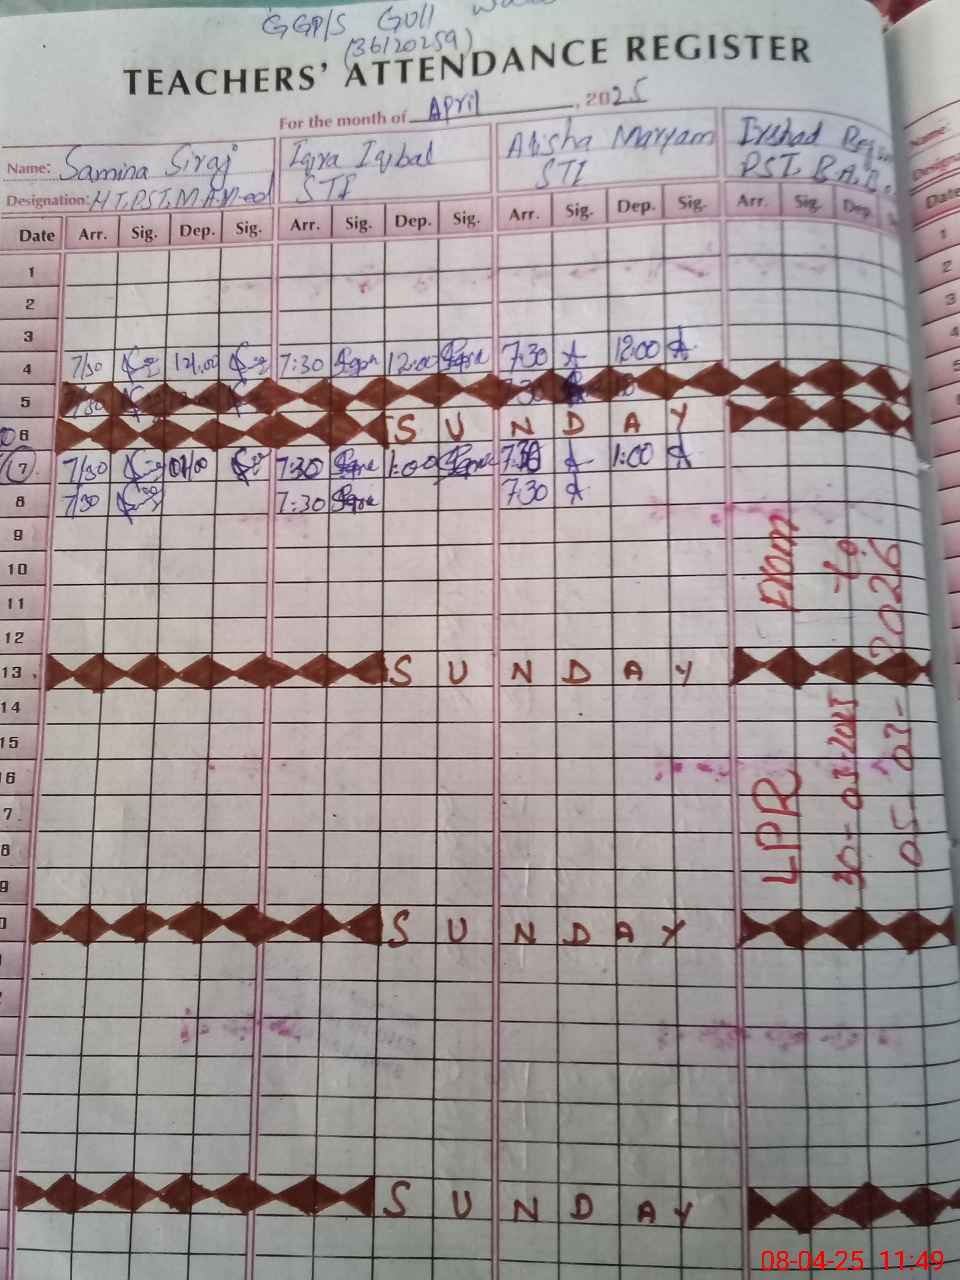 GGP/S Gull
(36120259)
TEACHERS' ATTENDANCE REGISTER
For the month of April, 2025
Name: Samina Siraj Iqra Iqbal Alisha Maryam Irshad
Designation: HT,PST,M.A,M-ed STI STI PST, B.A, B.
Date Arr. Sig. Dep. Sig. Arr. Sig. Dep. Sig. Arr. Sig. Dep. Sig. Arr. Sig. Dep.
1
2
3
4 7/30 12/00 7:30 Iqra 12:00 Iqra 7:30 A 12:00 A
5 7/30 7:30
6 SUNDAY
7 7/30 01/00 7:30 Iqra 1:00 Iqra 7:30 A 1:00 A
8 7/30 7:30 Iqra 7:30 A
9
10
11
12
13 SUNDAY
14
15
6
7
8
9
0 SUNDAY
SUNDAY
LPR From
30-03-2025 to
05-03-2026
Name:
Designa
Date
1
2
3
4
5
08-04-25 11:49